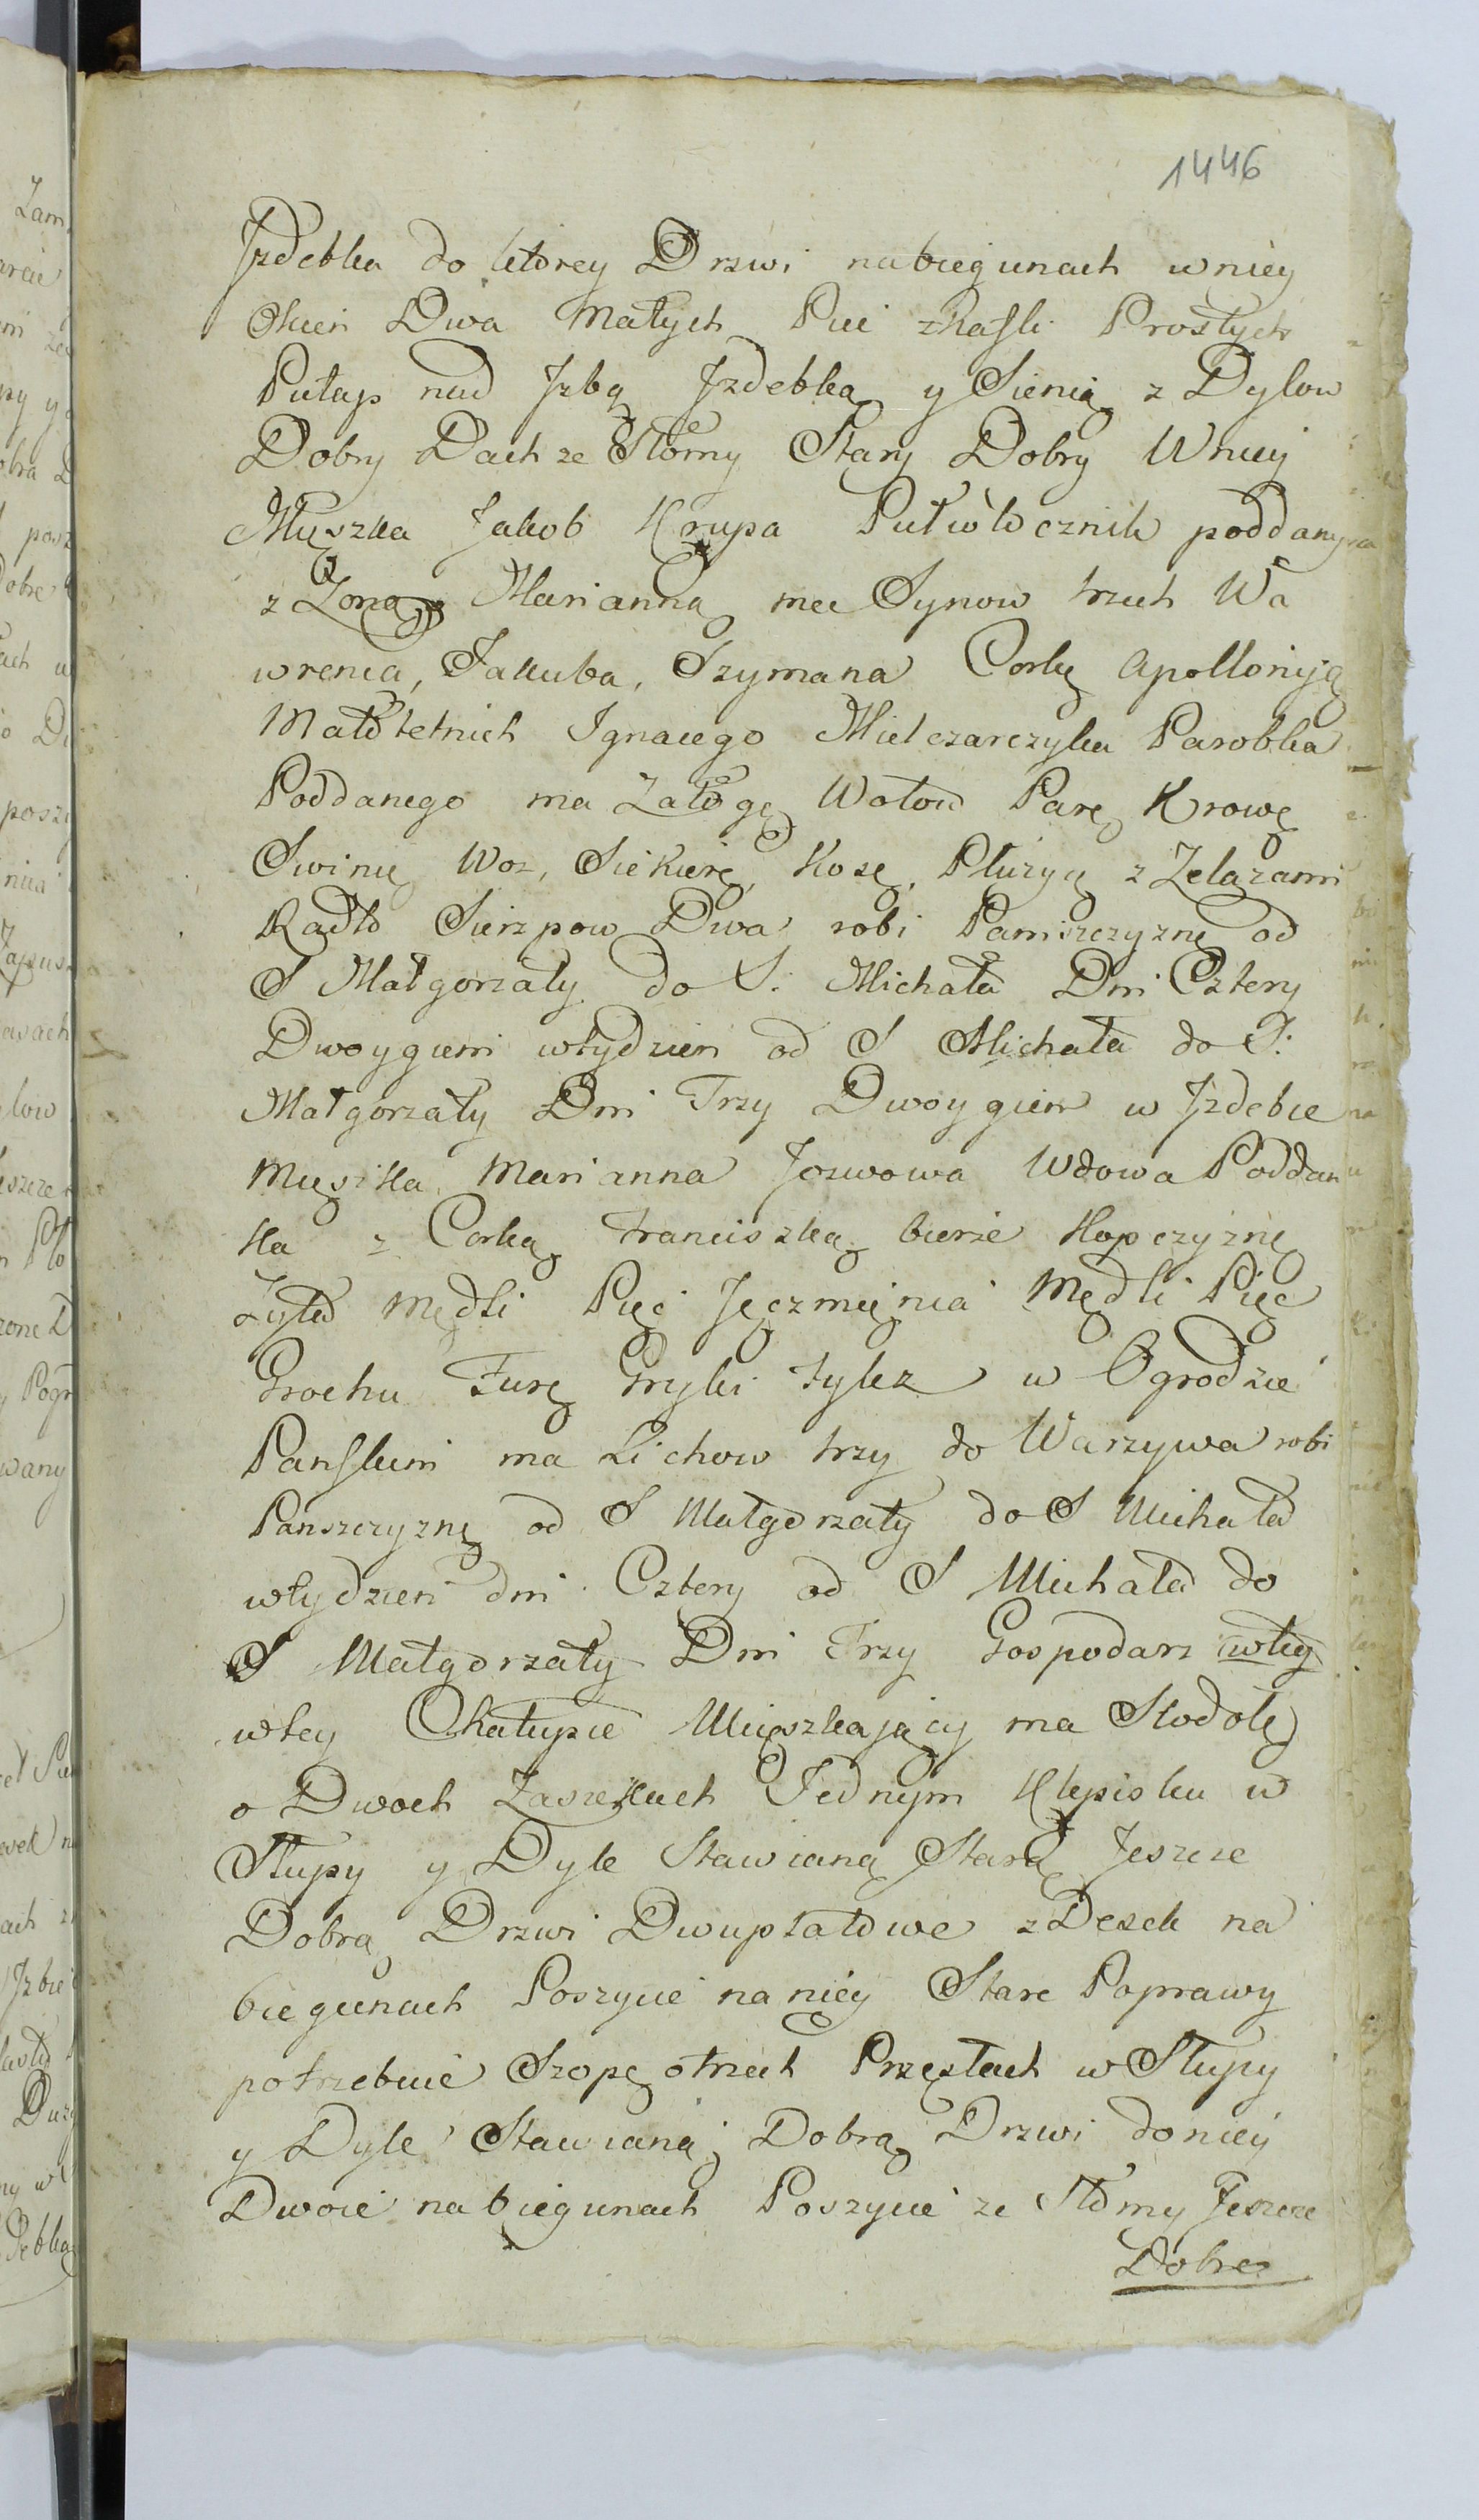 1446
Jzdebka do ktorey Drzwi nabiegunach wniey
Okien Dwa Małych Piec zkafli Prostych
Pułap nad Jzbą Jzdebką y Sienią z Dylow
Dobry Dach ze Słomy Stary Dobry Wniey
Mięszka Jakob Krupa Pułwłocznik poddany
z Zoną Marianną ma Synow trzech Wa
wrenca, Jakuba, Szymana Corkę Apolloniją
Małoletnich Ignacego Mielczarczyka Parobka
Poddanego ma Załogę Wołow Parę Krowę
Swinię Woz, Siekierę, Kosę, Płużyę z Zelazami
Radło Sierzpow Dwa robi Pamszczyznę od
S Małgorzaty do S: Michała Dni Cztery
Dwoygiem wtydzien od S Michała do S:
Małgorzaty Dni Trzy Dwoygiem w Jzdebce
Mięszka Marianna Jozwowa Wdowa Poddan
ka z Corką Franciszką bierze Kopczyznę
Zyta Mędli Pięć Jęczmięnia Mędli Pięc
Grochu Furę Gryki tylez w Ogrodzie
Panskim ma Lichow trzy do Warzywa robi
Panszczyznę od S Małgorzaty do S Michała
wtydzien dni Cztery od S Michała do
S Małgorzaty Dni Trzy Gospodarz wtey
wtey Chałupie Mięszkający ma Stodołę
o Dwoch Zasiekach Jednym Klepisku w
Słupy y Dyle Stawianą Starą Jeszcze
Dobrą Drzwi Dwupłatowe z Desek na
biegunach Poszycie naniey Stare Poprawy
potrzebuie Szopę otrzech Przęsłach w Słupy
y Dyle Stawianą Dobrą Drzwi doniey
Dwoie nabiegunach Poszycie ze Słomy Jeszcze
Dobre